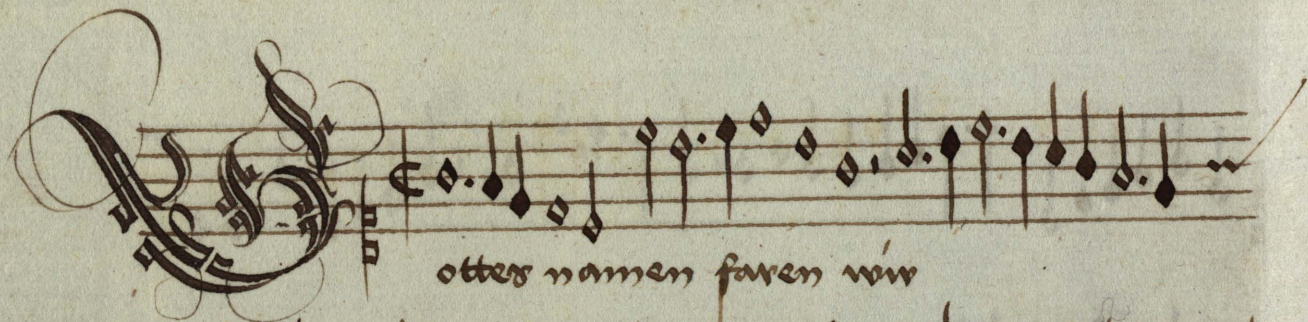 Gottes namen faren wir